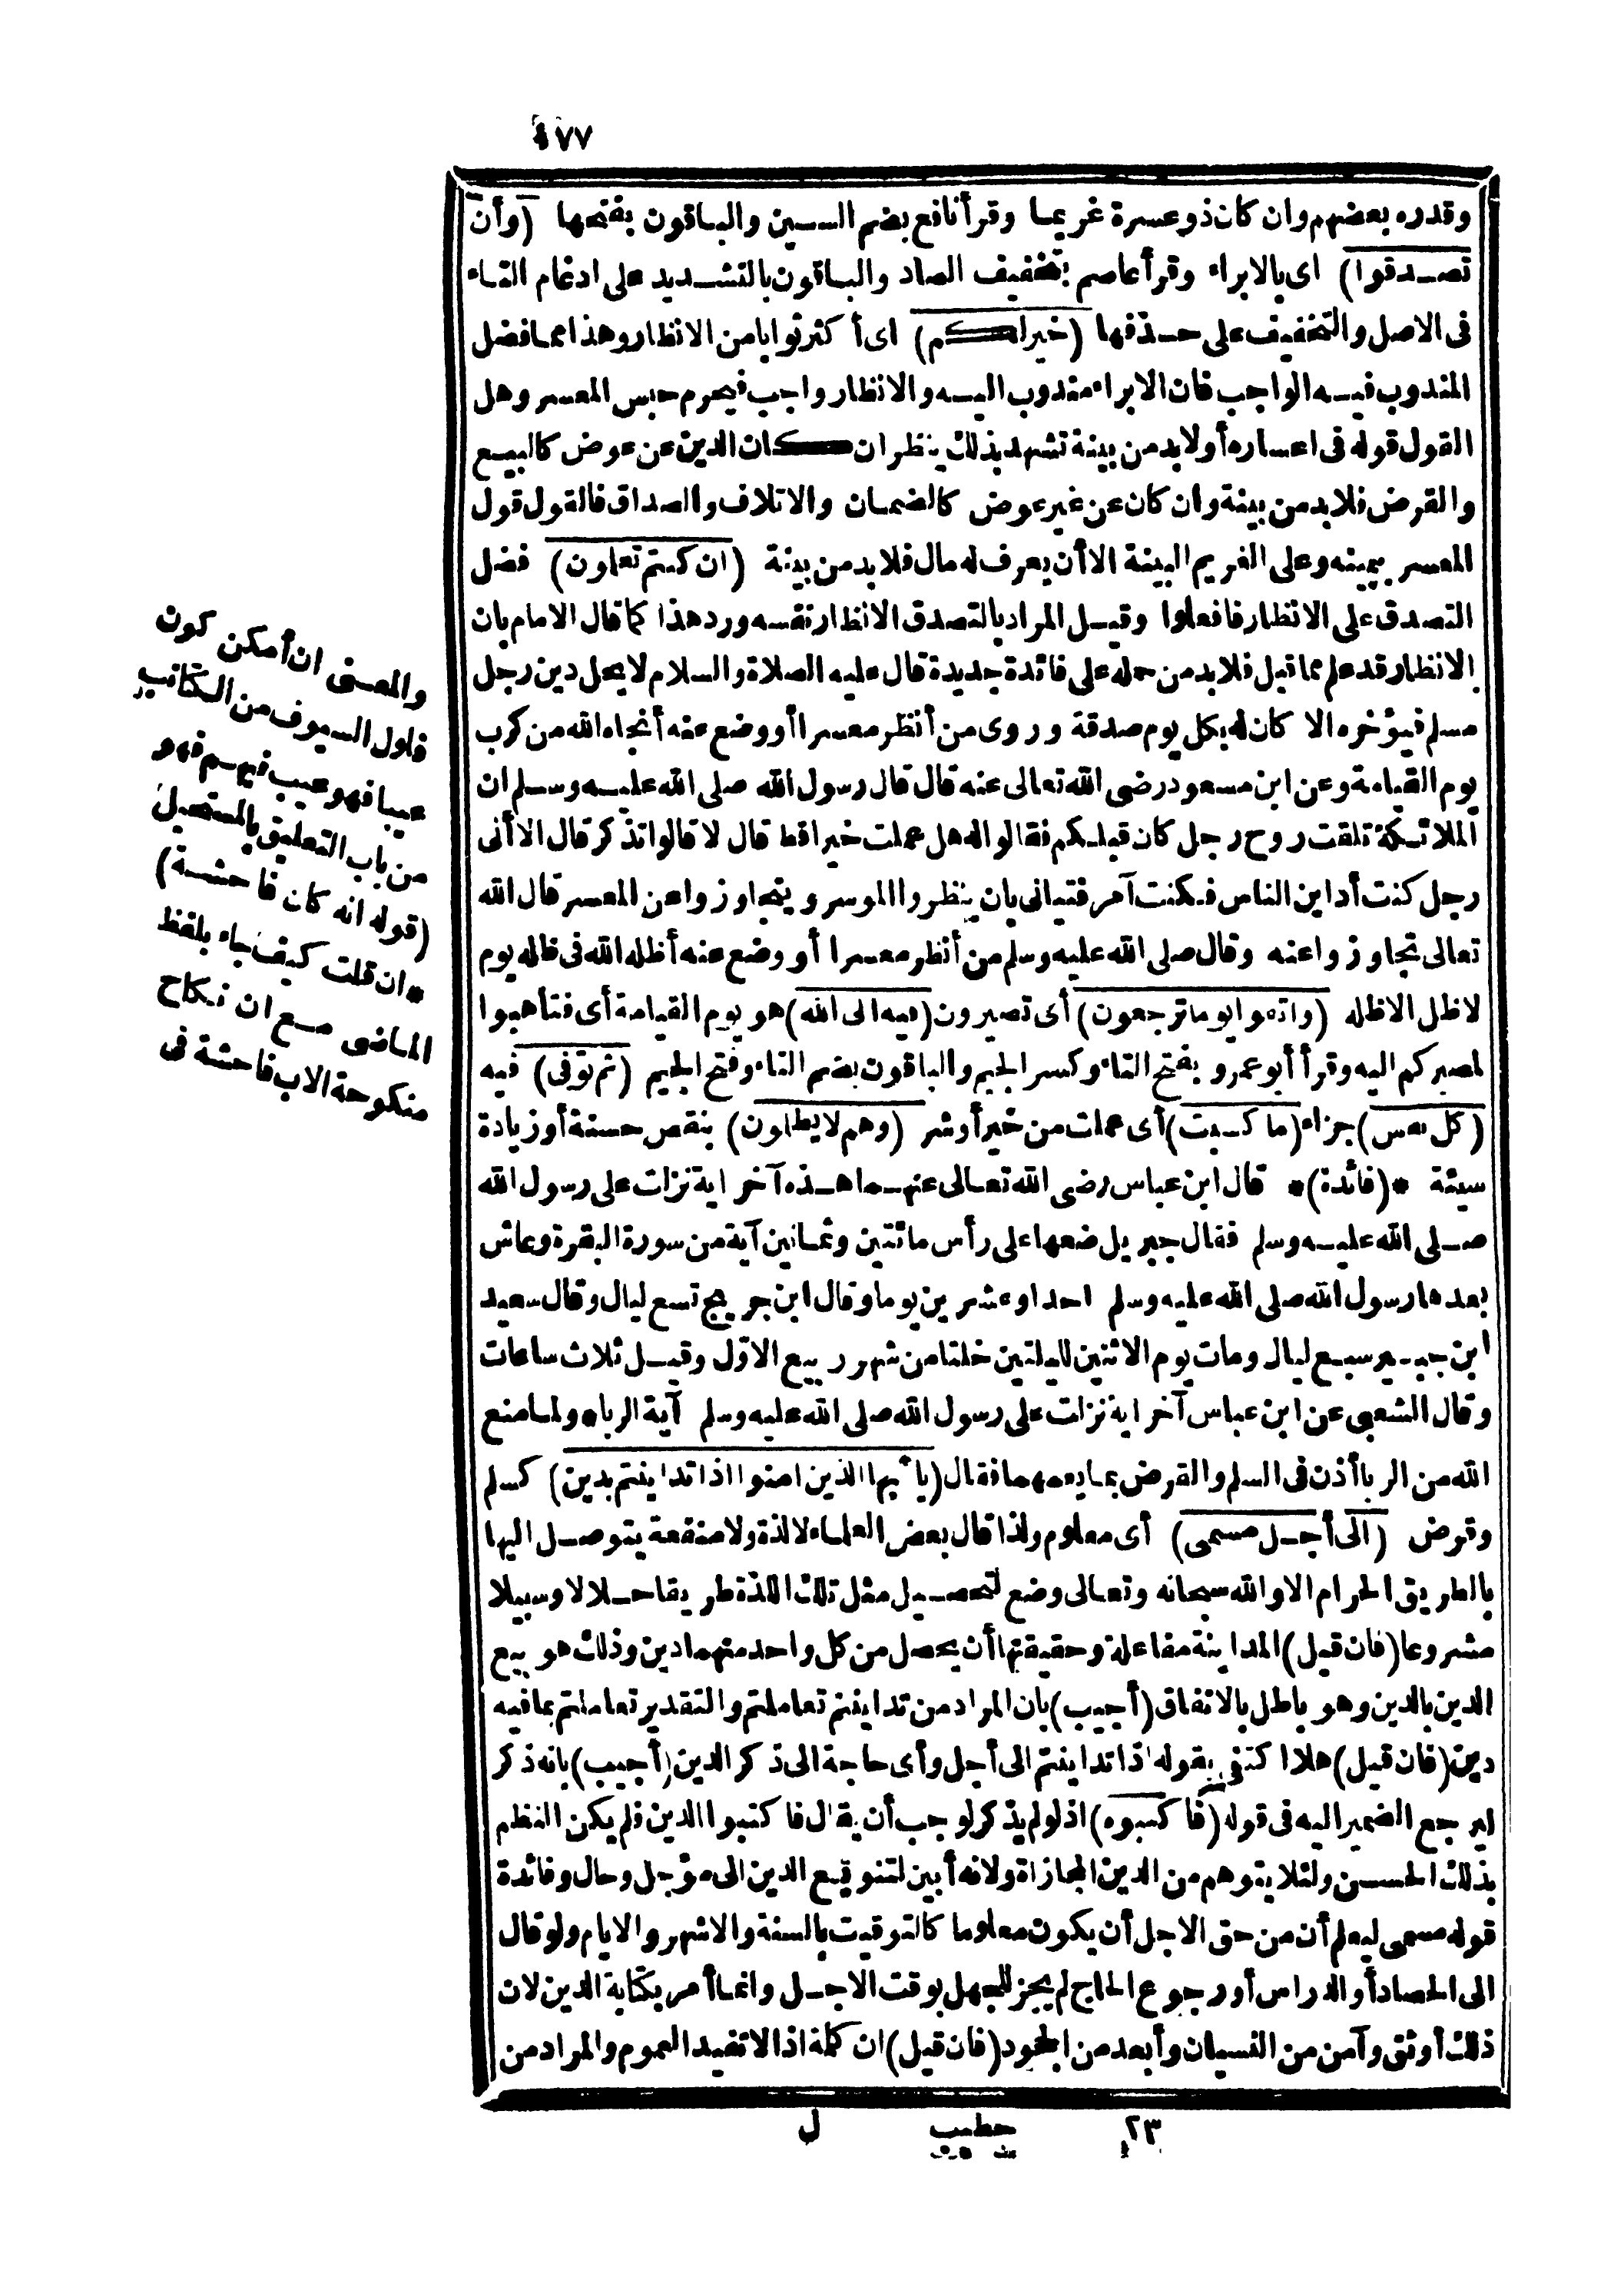 ١٧٧
وقدره بعضهم وان كان ذو عسرة غريما وقرأ نافع بضم السين والباقون بفتحها (وأن
تصدقوا) اى بالابراء وقرأ عاصم بتخفيف الصاد والباقون بالتشديد على ادغام التاء
فى الاصل والتخفيف على حذفها (خير لكم) اى أكثر ثوابا من الانظار وهذا مما فضل
المندوب فيه الواجب فان الابراء مندوب اليه والانظار واجب فيحرم حبس المعسر وهل
القول قوله فى اعساره أو لابد من بينة تشهد بذلك ينظر ان كان الدين عن عوض كالبيع
والقرض فلابد من بينة وان كان عن غير عوض كالضمان والاتلاف والصداق فالقول قول
المعسر بيمينه وعلى الغريم البينة الا أن يعرف له مال فلابد من بينة (ان كنتم تعلمون) فضل
التصدق على الانظار فافعلوا وقيل المراد بالتصدق الانظار نفسه ورد هذا كما قال الامام بان
الانظار قد علم مما قبل فلابد من حمله على فائدة جديدة قال عليه الصلاة والسلام لا يحل دين رجل
مسلم فيؤخره الا كان له بكل يوم صدقة وروى من أنظر معسرا أو وضع عنه أنجاه الله من كرب
يوم القيامة وعن ابن مسعود رضى الله تعالى عنه قال قال رسول الله صلى الله عليه وسلم ان
الملائكة تلقت روح رجل كان قبلكم فقالوا له هل عملت خيرا قط قال لا قالوا تذكر قال الا أنى
رجل كنت أداين الناس فكنت آمر فتيانى بان ينظروا الموسر ويتجاوزوا عن المعسر قال الله
تعالى تجاوزوا عنه وقال صلى الله عليه وسلم من أنظر معسرا أو وضع عنه أظله الله فى ظله يوم
لا ظل الا ظله (واتقوا يوما ترجعون) أى تصيرون (فيه الى الله) هو يوم القيامة أى فتأهبوا
لمصيركم اليه وقرأ أبو عمرو بفتح التاء وكسر الجيم والباقون بضم التاء وفتح الجيم (ثم توفى) فيه
(كل نفس) جزاء (ما كسبت) أى عملت من خير أو شر (وهم لا يظلمون) بنقص حسنة أو زيادة
سيئة *(فائدة)* قال ابن عباس رضى الله تعالى عنهما هذه آخر اية نزلت على رسول الله
صلى الله عليه وسلم فقال جبريل ضعها على رأس مائتين وثمانين آية من سورة البقرة وعاش
بعدها رسول الله صلى الله عليه وسلم احدا وعشرين يوما وقال ابن جريج تسع ليال وقال سعيد
ابن جبير سبع ليال ومات يوم الاثنين لليلتين خلتا من شهر ربيع الاول وقيل ثلاث ساعات
وقال الشعبى عن ابن عباس آخر اية نزلت على رسول الله صلى الله عليه وسلم آية الربا * ولما منع
الله من الربا أذن فى السلم والقرض بما يعمهما فقال (يا أيها الذين امنوا اذا تداينتم بدين) كسلم
وقرض (الى أجل مسمى) أى معلوم ولذا قال بعض العلماء لا لذة ولا منفعة يتوصل اليها
بالطريق الحرام الا والله سبحانه وتعالى وضع لتحصيل مثل تلك اللذة طريقا حلالا وسبيلا
مشروعا (فان قيل) المداينة مفاعلة وحقيقتها أن يحصل من كل واحد منهما دين وذلك هو بيع
الدين بالدين وهو باطل بالاتفاق (أجيب) بان المراد من تداينتم تعاملتم والتقدير تعاملتم بما فيه
دين (فان قيل) هلا اكتفى بقوله اذا تداينتم الى أجل وأى حاجة الى ذكر الدين (أجيب) بانه ذكر
ليرجع الضمير اليه فى قوله (فاكتبوه) اذ لو لم يذكر لوجب أن يقال فاكتبوا الدين فلم يكن النظم
بذلك الحسن ولئلا يتوهم من الدين المجازاة ولانه أبين لتنويع الدين الى مؤجل وحال وفائدة
قوله مسمى ليعلم أن من حق الاجل أن يكون معلوما كالتوقيت بالسنة والاشهر والايام ولو قال
الى الحصاد أو الدراس أو رجوع الحاج لم يجز للجهل بوقت الاجل وانما أمر بكتابة الدين لان
ذلك أوثق وآمن من النسيان وأبعد من الجحود (فان قيل) ان كلمة اذا لا تفيد العموم والمراد من
٢٣ خطيب ل
والمعنى ان أمكن كون
فلول السيوف من الكتائب
عيبا فهو عيب فيهم فهو
من باب التعليق بالمستحيل
(قوله انه كان فاحشة)
*ان قلت كيف جاء بلفظ
الماضى مع ان نكاح
منكوحة الاب فاحشة فى